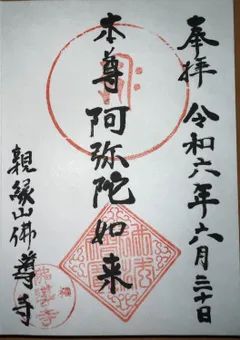 奉拝 令和六年六月三十日
本尊阿弥陀如来
親縁山佛尊寺